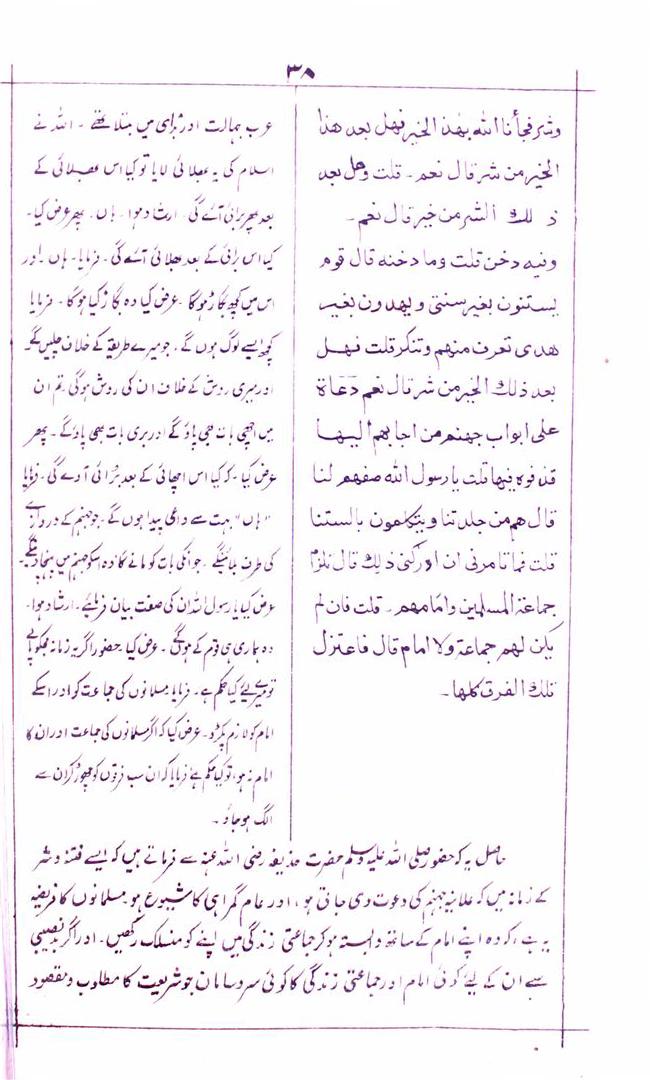 ٣٨
وشر فجأنا الله بهذا الخير فهل بعد هذا
الخير من شر قال نعم ۔ قلت وهل بعد
ذلك الشر من خير قال نعم ۔
وفيه دخن قلت وما دخنه قال قوم
يستنون بغير سنتي ويهدون بغير
هدى تعرف منهم وتنكر قلت فهل
بعد ذلك الخير من شر قال نعم دعاة
على ابواب جهنم من اجابهم اليها
قذفوه فيها قلت يا رسول الله صفهم لنا
قال هم من جلدتنا ويتكلمون بالستنا
قلت فما تأمرني ان ادركني ذلك قال تلزم
جماعة المسلمين وامامهم ۔ قلت فان لم
يكن لهم جماعة ولا امام قال فاعتزل
تلك الفرق كلها ۔
عرب جہالت اور بُرائی میں مبتلا تھے ۔ اللہ نے
اسلام کی یہ بھلائی لایا تو کیا اس بھلائی کے
بعد پھر برائی آئے گی ۔ ارشاد ہوا ۔ ہاں ۔ پھر عرض کیا ۔
کیا اس برائی کے بعد بھلائی آئے گی ۔ فرمایا ۔ ہاں اور
اس میں کچھ بگاڑ ہوگا ۔ عرض کیا وہ بگاڑ کیا ہوگا ۔ فرمایا
کچھ ایسے لوگ ہوں گے ۔ جو میرے طریقے کے خلاف چلیں گے
اور میری روش کے خلاف ان کی روش ہوگی ۔ تم ان
میں اچھی بات بھی پاؤ گے اور بری بات بھی پاؤ گے ۔ پھر
عرض کیا ۔ کہ کیا اس اچھائی کے بعد بُرائی آوے گی ۔ فرمایا
"ہاں" بہت سے داعی پیدا ہوں گے ۔ جو جہنم کے دروازے
کی طرف بلائینگے ۔ جو انکی بات کو مانے گا وہ اسکو جہنم میں پہنچا دینگے
عرض کیا یا رسول اللہ ان کی صفت بیان فرمائیے ۔ ارشاد ہوا ۔
وہ ہماری ہی قوم کے ہوں گے ۔ عرض کیا حضور اگر یہ زمانہ مجھکو پاے
تو میرے لئے کیا حکم ہے ۔ فرمایا مسلمانوں کی جماعت کو اور اسکے
امام کو لازم پکڑو ۔ عرض کیا کہ اگر مسلمانوں کی جماعت اور ان کا
امام نہ ہو، تو کیا حکم ہے فرمایا کہ ان سب فرقوں کو چھوڑ کر ان سے
الگ ہوجاؤ ۔
حاصل یہ کہ حضور صلی اللہ علیہ وسلم حضرت حذیفہ رضی اللہ عنہ سے فرماتے ہیں کہ ایسے فتنہ و شر
کے زمانہ میں کہ علانیہ جہنم کی دعوت دی جاتی ہو ، اور عام گمراہی کا شیوع ہو مسلمانوں کا فریضہ
یہ ہے ، کہ وہ اپنے امام کے ساتھ وابستہ ہو کر جماعتی زندگی میں اپنے کو منسلک رکھیں ۔ اور اگر بدنصیبی
سے ان کے لئے کوئی امام اور جماعتی زندگی کا کوئی سروسامان جو شریعت کا مطلوب و مقصود